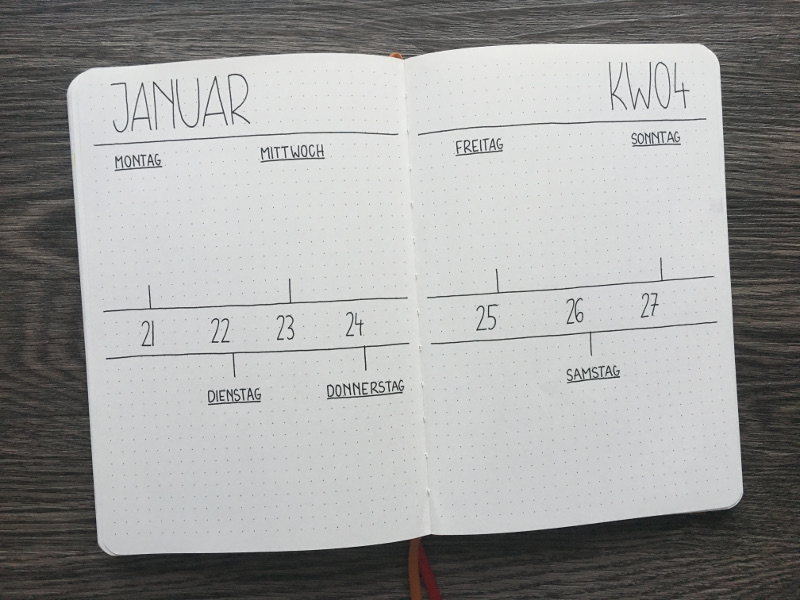 JANUAR
MONTAG MITTWOCH
21 22 23 24
DIENSTAG DONNERSTAG
KW04
FREITAG SONNTAG
25 26 27
SAMSTAG